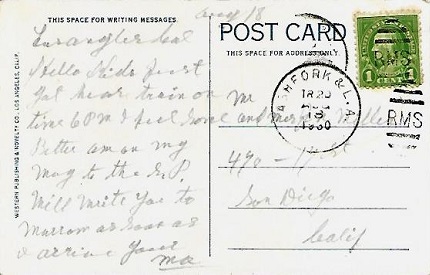 Aug 18
THIS SPACE FOR WRITING MESSAGES.
POST CARD
THIS SPACE FOR ADDRESS ONLY.
Cal
Hello Kids just
got here train on
time 6 PM feel some
better am on my
way to the
Will write you to
morrow as soon as
I arrive yours
Ma
Mr
and Mrs
470 - 17 St
San Diego
Calif
ASH FORK & L. A.
TR 20
AUG
18
1930
RMS
RMS
1 CENT 1
WESTERN PUBLISHING & NOVELTY CO., LOS ANGELES, CALIF.